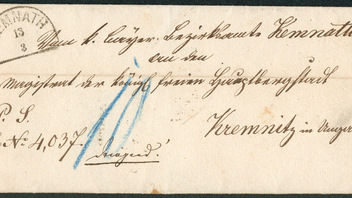 KEMNATH
13
3
Vom k. bayer. Bezirksamte Kemnath
an den
Magistrat der königl. freien Hauptbergstadt
P. S.
No 4,037.
10
Kremnitz in Ungar